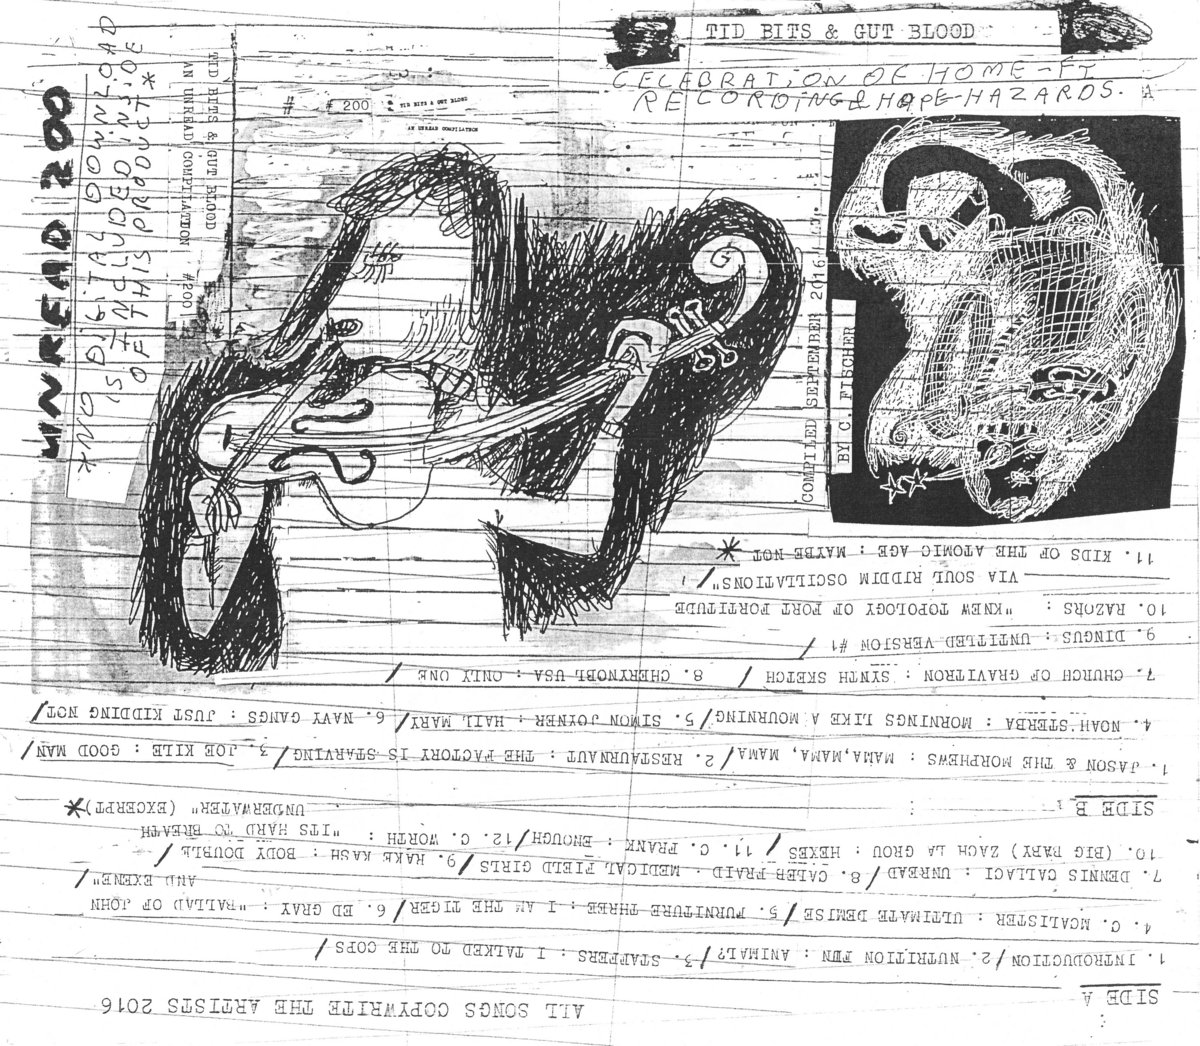 TID BITS & GUT BLOOD
CELEBRATION OF HOME-FI
RECORDING & HAPE-HAZARDS.
UNREAD 200
*NO DIGITAL DOWNLOAD
IS INCLUDED INSIDE
OF THIS PRODUCT*
TID BITS & GUT BLOOD
AN UNREAD COMPILATION #200
# # 200
TID BITS & GUT BLOOD
AN UNREAD COMPILATION
COMPILED SEPTEMBER 2016
BY C. FISCHER
ALL SONGS COPYWRITE THE ARTISTS 2016
SIDE A
1. INTRODUCTION/2. NUTRITION FUN : ANIMAL?/3. STAFFERS : I TALKED TO THE COPS/
4. C. MCALISTER : ULTIMATE DEMISE/5. FURNITURE THREE : I AM THE TIGER/6. ED GRAY : "BALLAD OF JOHN
AND EXENE"/
7. DENNIS CALLACI : UNREAD/8. CALEB FRAID . MEDICAL FIELD GIRLS/9. RAKE KASH : BODY DOUBLE/
10. (BIG BABY) ZACH LA GROU : HEXES/ 11. C. FRANK : ENOUGH/12. C. WORTH : "ITS HARD TO BREATH
UNDERWATER" (EXCERPT)*
SIDE B
1. JASON & THE MORPHEWS : MAMA, MAMA, MAMA/2. RESTAURNAUT : THE FACTORY IS STARVING/3. JOE KILE : GOOD MAN/
4. NOAH STERBA : MORNINGS LIKE A MOURNING/5. SIMON JOYNER : HAIL MARY/ 6. NAVY GANGS : JUST KIDDING NOT/
7. CHURCH OF GRAVITRON : SYNTH SKETCH / 8. CHERYNOBL USA : ONLY ONE /
9. DINGUS : UNTITLED VERSION #1 /
10. RAZORS : "KNEW TOPOLOGY OF FORT FORTITUDE
VIA SOUL RIDDIM OSCILLATIONS"/
11. KIDS OF THE ATOMIC AGE : MAYBE NOT *